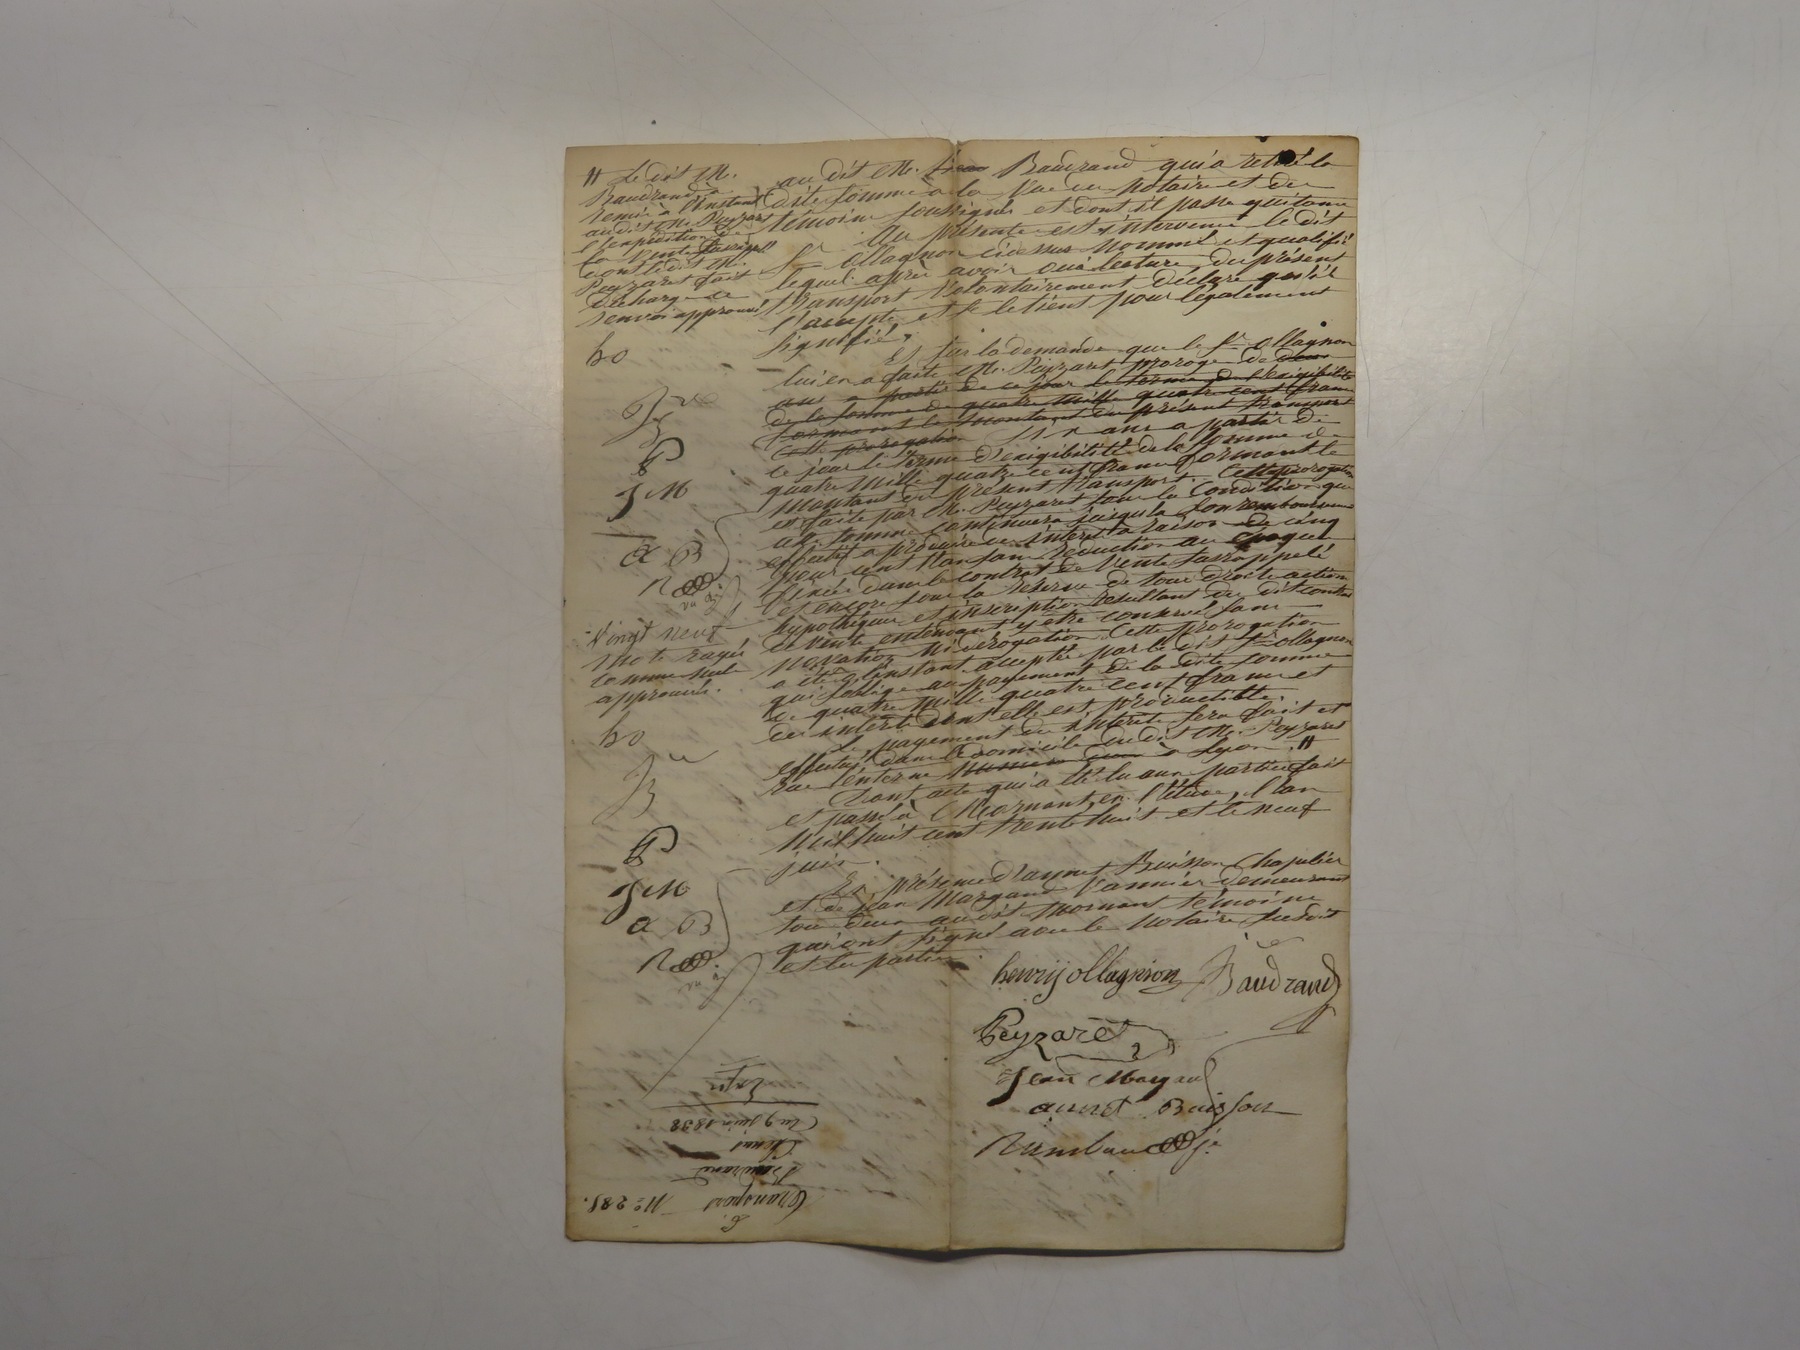 # Le dit M.
Baudrand a
remis à l'instant
au dit M. Peyzaret
l'expédition de
la vente susrapellé
dont le dit M.
Peyzaret fait
décharge ce
renvoi approuvé
ho
B
P
J M
a B
R
Vingt neuf
mots rayés
comme nuls
approuvés.
ho
B
P
J M
a B
R
au dit M. Baudrand qui a retiré la
dite somme a la vue du notaire et des
témoins soussignés et dont il passe quittance
Au présente est intervenu le dit
Sr ollagnon cidessus nommé et qualifié
lequel après avoir oui lecture du présent
transport volontairement déclare qu'il
l'accepte et se le tient pour légalement
signifié.
Et sur la demande que le Sr ollagnon
lui en a faite M. Peyzaret proroge de deux
ans a partir de ce jour le terme d'exigibilité
de la somme de quatre mille quatre cent francs
formant le montant du présent transport
Cette prorogation six ans a partir de
ce jour le terme d'exigibilité de la somme de
quatre mille quatre cent francs formant le
montant du présent transport. Cette prorogation
est faite par M. Peyzaret sous la condition que
cette somme continuera jusqu'à son remboursement
effectif a produire des intérêts a raison de cinq
pour cent l'an sans réduction aux époques
fixées dans le contrat de vente susrappelé
et encore sous la réserve de tous droits actions
hypothèques et inscription résultant du dit contrat
de vente entendant y être conservé sans
novation ni dérogation. Cette prorogation
a été a l'instant acceptée par le dit Sr ollagnon
qui s'oblige au payement de la dite somme
de quatre mille quatre cent francs et
des intérêts dont elle est productible.
Le payement des intérêts sera fait et
effectué dans le domicile du dit M. Peyzaret
rue lanterne à Lyon. #
Dont acte qui a été lu aux parties fait
et passé à Mornant, en l'étude, l'an
mil huit cent trente huit et le neuf
juin.
En présence d'aymet Buisson Chapelier
et de jean Margand vannier demeurant
tous deux au dit Mornant témoins
qui ont signé avec le notaire susdit
et les parties.
henry ollagnion Baudrand
Peyzaret
Jean Margand
aunet Buisson
Rambaud je
Du 9 juin 1838
Baudrand
Transport
N° 285.